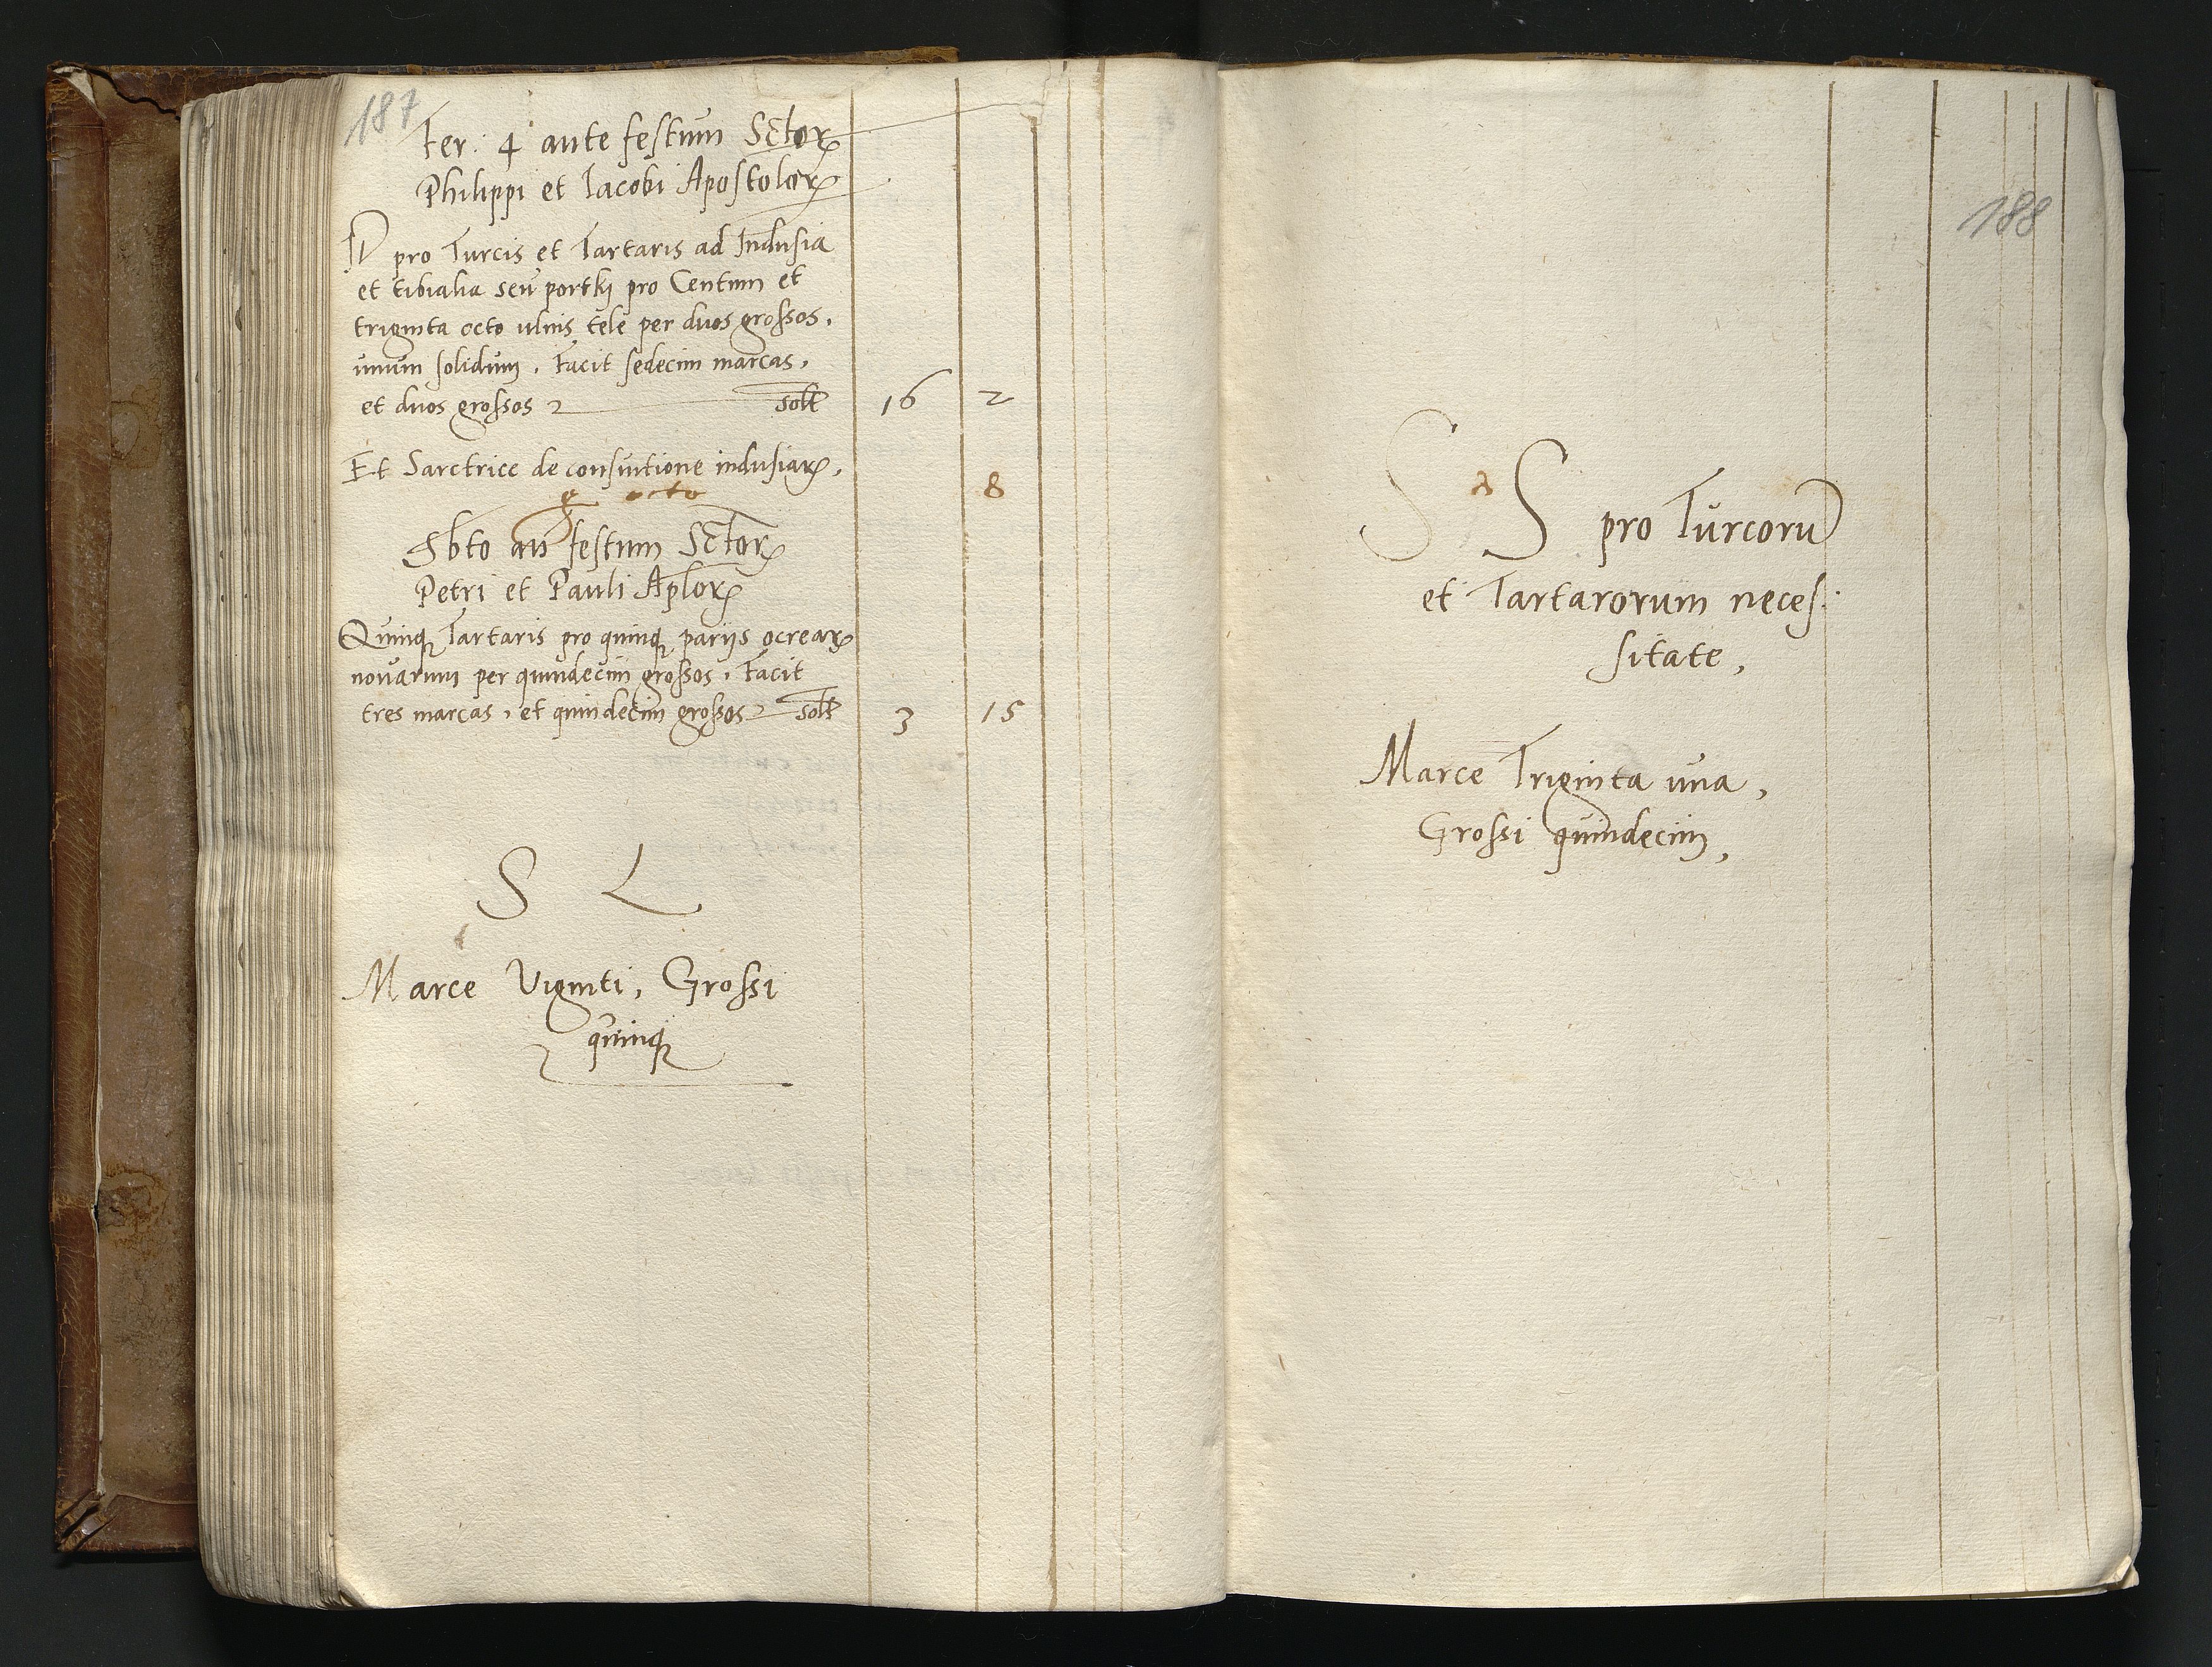 187
Fer: 4 ante festum Sctorꝝ
Philippi et Iacobi Apostolorꝝ
D pro Turcis et Tartaris ad Indusia
et tibialia seu portki pro Centum et
triginta octo ulnis tele per duos grossos,
unum solidum, Facit sedecim marcas,
et duos grossos solt 16 2
Et Sarctrice de consuitione indusiarꝝ, 8
gr octo
Sbto an festum Sctorꝝ
Petri et Pauli Aplorꝝ
Quinqꝫ Tartaris pro quinqꝫ parijs ocrearꝝ
novarum per quindecim grossos, Facit
tres marcas, et quindecim grossos solt 3 15
S L
Marce Viginti, Grossi
quinqꝫ
188
S S pro Turcorū
et Tartarorum neces:
sitate,
Marce Triginta una,
Grossi quindecim,